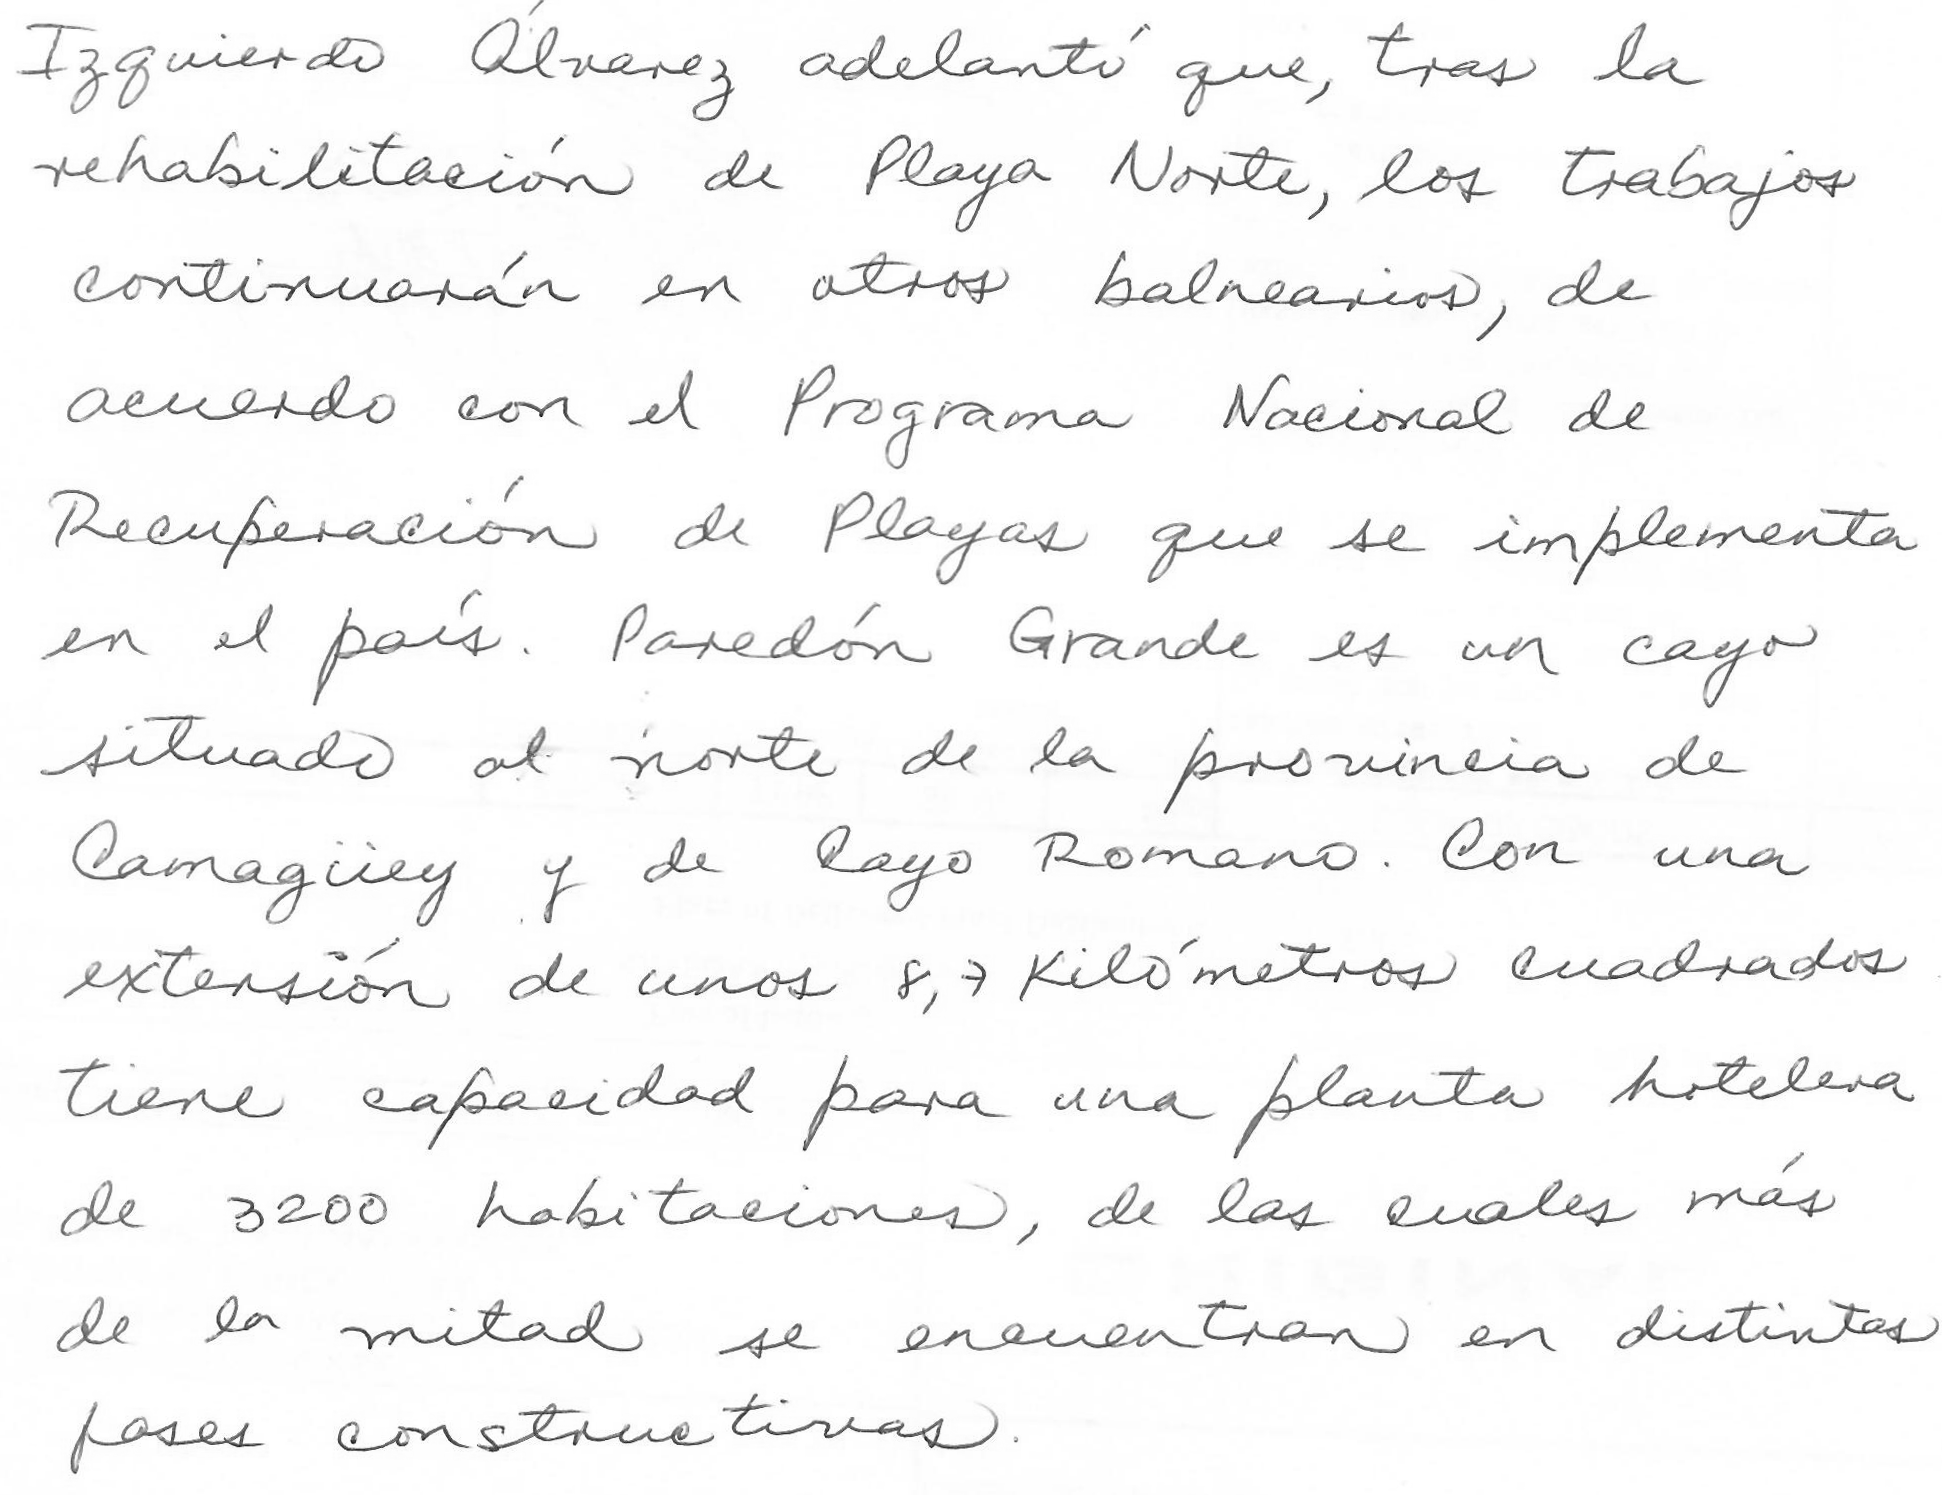 Izquierdo Álvarez adelantó que, tras la
rehabilitación de Playa Norte, los trabajos
continuarán en otros balnearios, de
acuerdo con el Programa Nacional de
Recuperación de Playas que se implementa
en el país. Paredón Grande es un cayo
situado al norte de la provincia de
Camagüey y de Cayo Romano. Con una
extensión de unos 8,7 Kilómetros cuadrados
tiene capacidad para una planta hotelera
de 3200 habitaciones, de las cuales más
de la mitad se encuentran en distintas
fases constructivas.